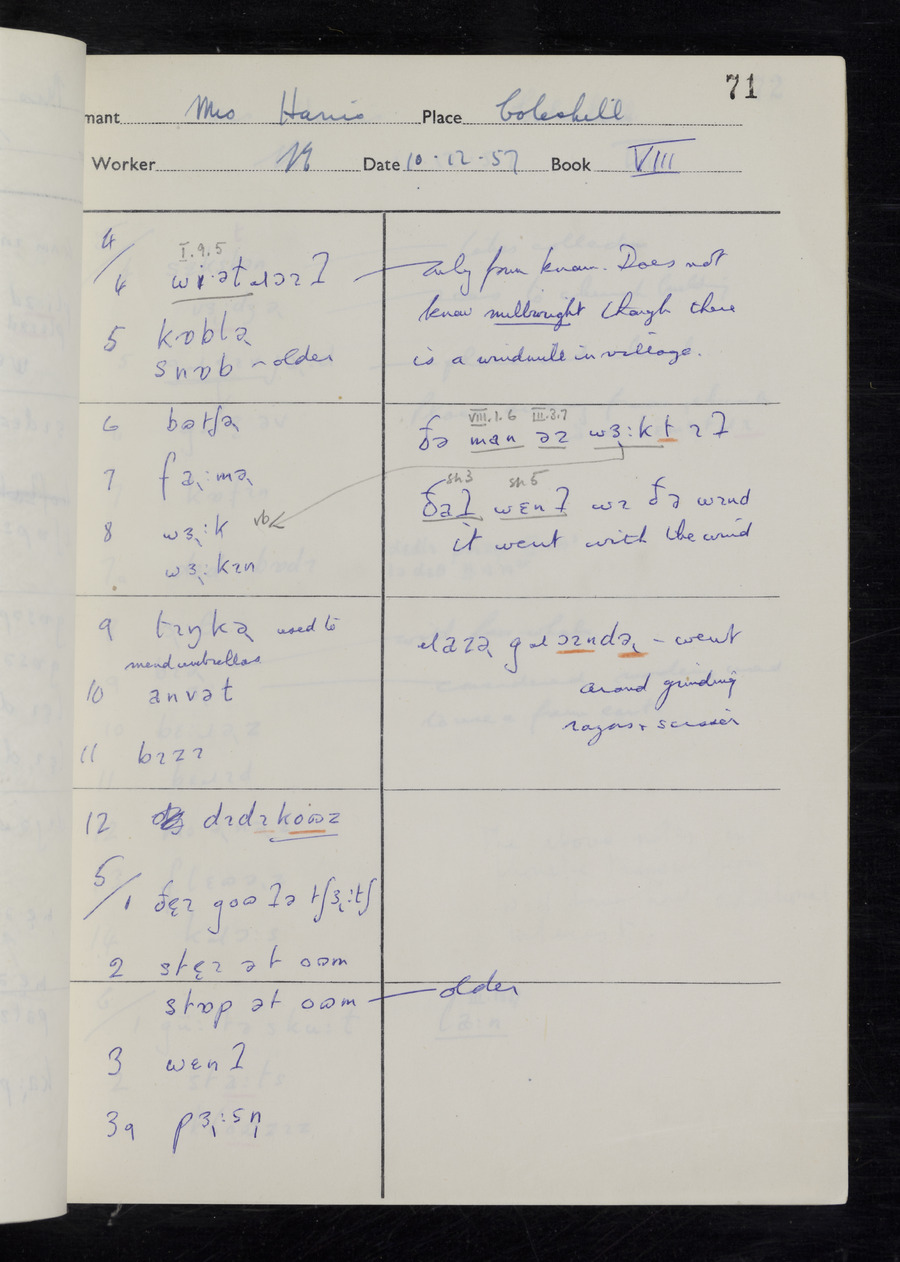 71
mant Mrs Harris Place Coleshill
Worker Date 10-12-57 Book VIII
4/
I.9.5
4 only form known. Does not
know millwright though there
is a windmill in village.
5 kɒblə
snɒb - older
6 bətʃə
VIII.1.6 III.3.7
ðə man əz wɜ:kt ɪʔ
7 fa:mə
sh3 sh5
ðaʔ wɛnʔ wɪ ðə wɪnd
it went with the wind
8 wɜ:k vb
wɜ:kɪn
9 tɪŋkə used to
mend umbrellas
went
around grinding
razors + scissors
10 anvət
11 bɪzɪ
12
5/
1
2
stɒp ət older
3 wɛnʔ
3a pɜ:sn̩